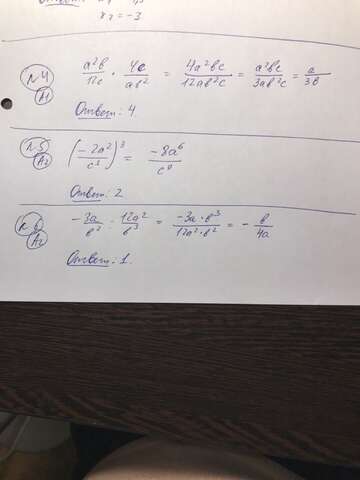 x₂ = -3
№4 a²b/12c · 4c/ab² = 4a²bc/12ab²c = a²bc/3ab²c = a/3b
A1
Ответ: 4.
№5 (-2a²/c³)³ = -8a⁶/c⁹
A2
Ответ: 2
№6 -3a/b² : 12a²/b³ = -3a·b³/12a²·b² = - b/4a
A2
Ответ: 1.